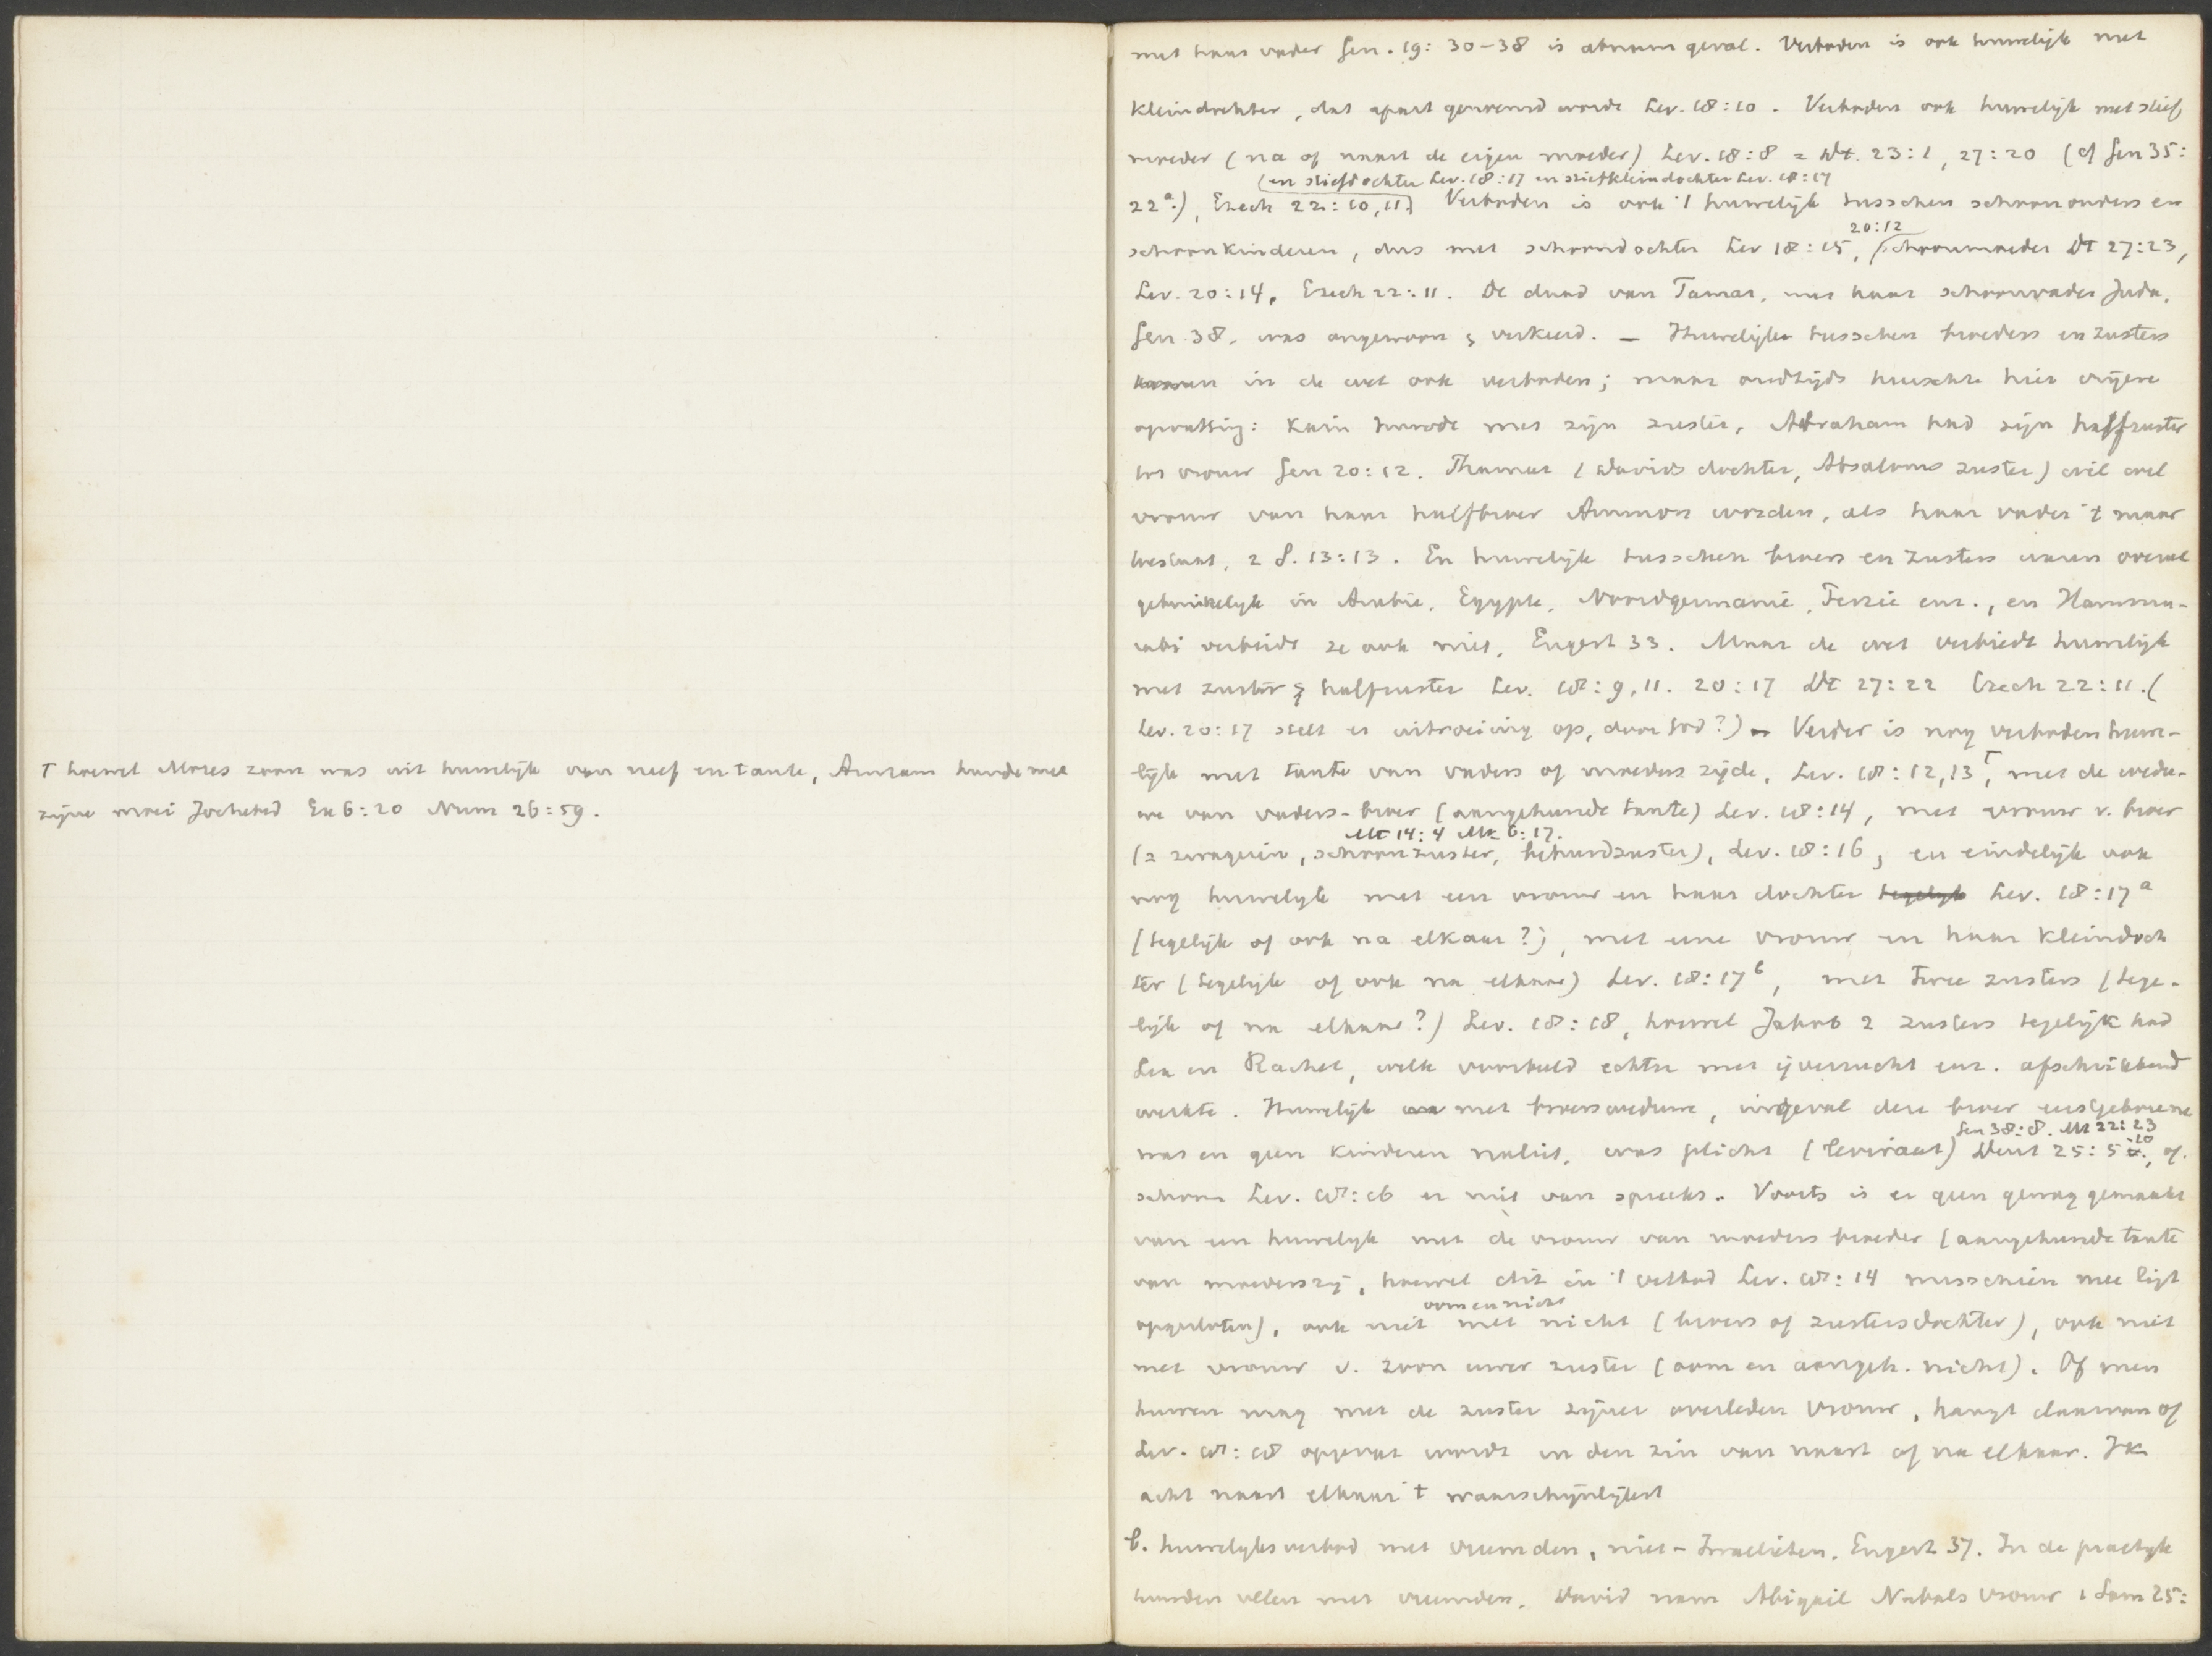 † hoewel Mozes zoon was uit huwelijk van neef en tante, Amram huwde met
zijne moei Jochebed Ex 6:20 Num 26:59.
met haar vader Gen. 19:30-38 is abnorm geval. Verboden is ook huwelijk met
kleindochter, dat apart genoemd wordt Lev. 18:10. Verboden ook huwelijk met stief
moeder (na of naast de eigen moeder) Lev. 18:8 = Dt. 23:1, 27:20 (cf Gen 35:
(en stiefdochter Lev. 18:17 en stiefkleindochter Lev. 18:17
22a.), Ezech 22:10,11) Verboden is ook 't huwelijk tusschen schoonouders en
20:12
schoonkinderen, dus met schoondochter Lev 18:15, schoonmoeder Dt 27:23,
Lev. 20:14, Ezech 22:11. De daad van Tamar, met haar schoonvader Juda,
Gen 38, was ongewoon & verkeerd. — Huwelijken tusschen broeders en zusters
in de wet ook verboden; maar oudtijds heerschte hier vrijere
opvatting: Kain huwde met zijn zuster, Abraham had zijn halfzuster
tot vrouw Gen 20:12. Thamar (Davids dochter, Absaloms zuster) wil wel
vrouw van haar halfbroer Ammon worden, als haar vader 't maar
toestaat, 2 S. 13:13. En huwelijk tusschen broers en zusters waren overal
gebruikelijk in Arabie, Egypte, Noordgermanië, Perzië enz., en Hammu-
rabi verbiedt ze ook niet, Engert 33. Maar de wet verbiedt huwelijk
met zuster & halfzuster Lev. 18:9,11. 20:17 Dt 27:22 Ezech 22:11. (
Lev. 20:17 stelt er uitroeiing op, door God?) — Verder is nog verboden huwe-
lijk met tante van vaders of moeders zijde, Lev. 18:12,13†, met de wedu-
we van vaders-broer (aangehuwde tante) Lev. 18:14, met vrouw v. broer
Mt 14:4 Mk 6:17.
(= zwagerin, schoonzuster, behuwdzuster), Lev. 18:16, en eindelijk ook
nog huwelijk met een vrouw en haar dochter tegelijk Lev. 18:17a
(tegelijk of ook na elkaar?), met eene vrouw en haar kleindoch
ter (tegelijk of ook na elkaar) Lev. 18:17b, met twee zusters (tege-
lijk of na elkaar?) Lev. 18:18, hoewel Jakob 2 zusters tegelijk had
Lea en Rachel, welk voorbeeld echter met ijverzucht enz. afschrikkend
werkte. Huwelijk met broersweduwe, ingeval deze broer eerstgeborene
Gen 38:8. Mt 22:23
was en geen kinderen naliet, was plicht (leviraat) Deut 25:5-10, of.
schoon Lev. 18:16 er niet van spreekt. Voorts is er geen gewag gemaakt
van een huwelijk met de vrouw van moeders broeder (aangehuwde tante
van moederszij, hoewel dit in 't verbod Lev. 18:14 misschien mee ligt
oom en nicht
opgesloten), ook niet met nicht (broers of zustersdochter), ook niet
met vrouw v. zoon uwer zuster (oom en aangeh. nicht). Of men
huwen mag met de zuster zijner overleden vrouw, hangt daarvan of
Lev. 18:18 opgevat wordt in den zin van naast of na elkaar. Ik
acht naast elkaar 't waarschijnlijkst
b. huwelijksverbod met vreemden, niet-Israelieten. Engert 37. In de practijk
huwden velen met vreemden. David nam Abigail Nabals vrouw 1 Sam 25: